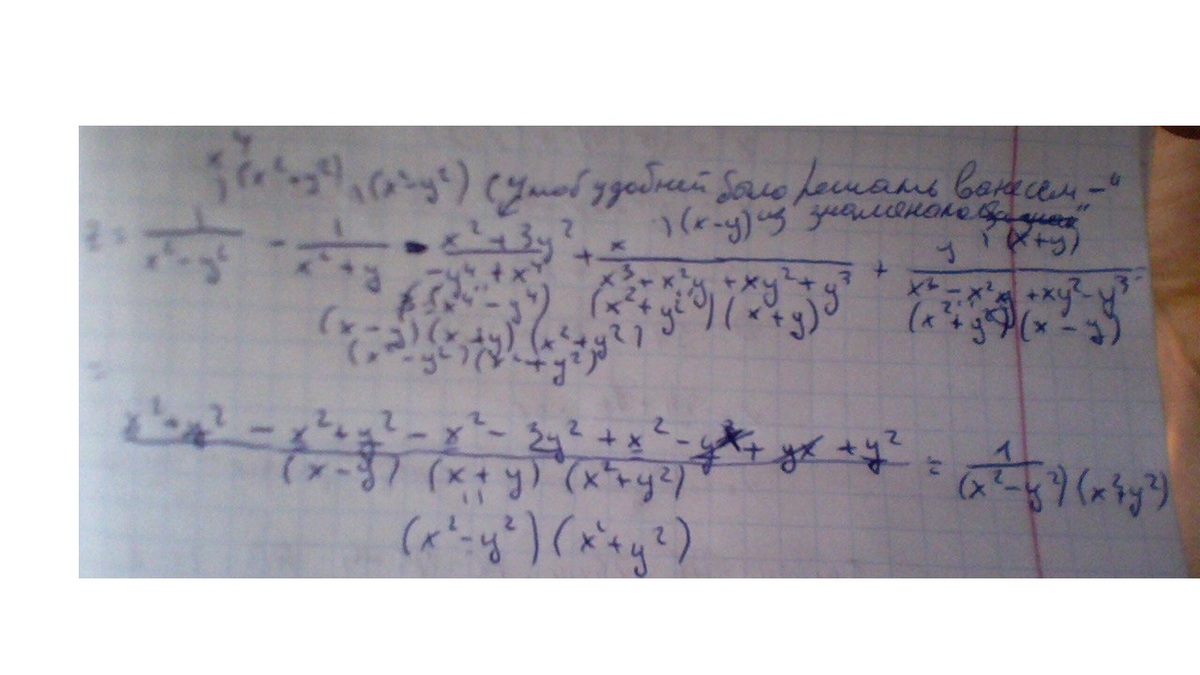 (x²+y²) , (x²-y²) (чтоб удобней было решать вынесем -"
, (x-y) из знаменателя , (x+y)
1/(x²-y²) - 1/(x²+y) - (x²+3y²)/(-y⁴+x⁴) + x/(x³+x²y+xy²+y³) + y/(x³-x²y+xy²-y³) =
(x⁴-y⁴) (x²+y²)(x+y) (x²+y²)(x-y)
(x-y)(x+y)(x²+y²)
(x²-y²)(x²+y²)
=
- x²+y² - x² - 3y² + x² - yx + yx + y²
(x-y) (x+y) (x²+y²) = 1/((x²-y²)(x²+y²))
(x²-y²)(x²+y²)